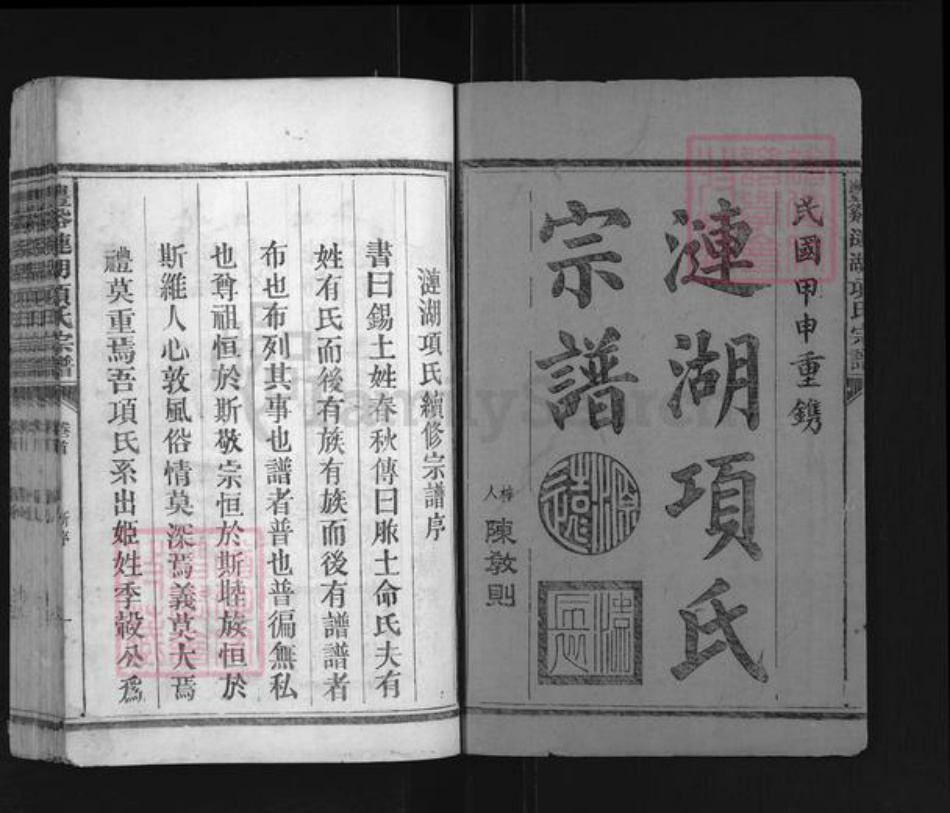 民國甲申重鐫
漣湖項氏
宗譜
梓人 陳敦則
漣湖項氏續修宗譜序
書曰錫土姓春秋傳曰胙土命氏夫有
姓有氏而後有族有族而後有譜譜者
布也布列其事也譜者普也普徧無私
也尊祖恒於斯敬宗恒於斯睦族恒於
斯維人心敦風俗情莫深焉義莫大焉
禮莫重焉吾項氏系出姬姓季穀公爲
漣湖項氏宗譜
卷首